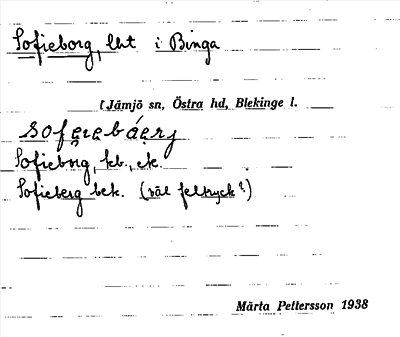 Sofieborg, lht i Binga
i Jämjö sn, Östra hd, Blekinge l.
Sofieborg, kb., ek.
Sofieberg bek. (väl feltryck?)
Märta Pettersson 1938